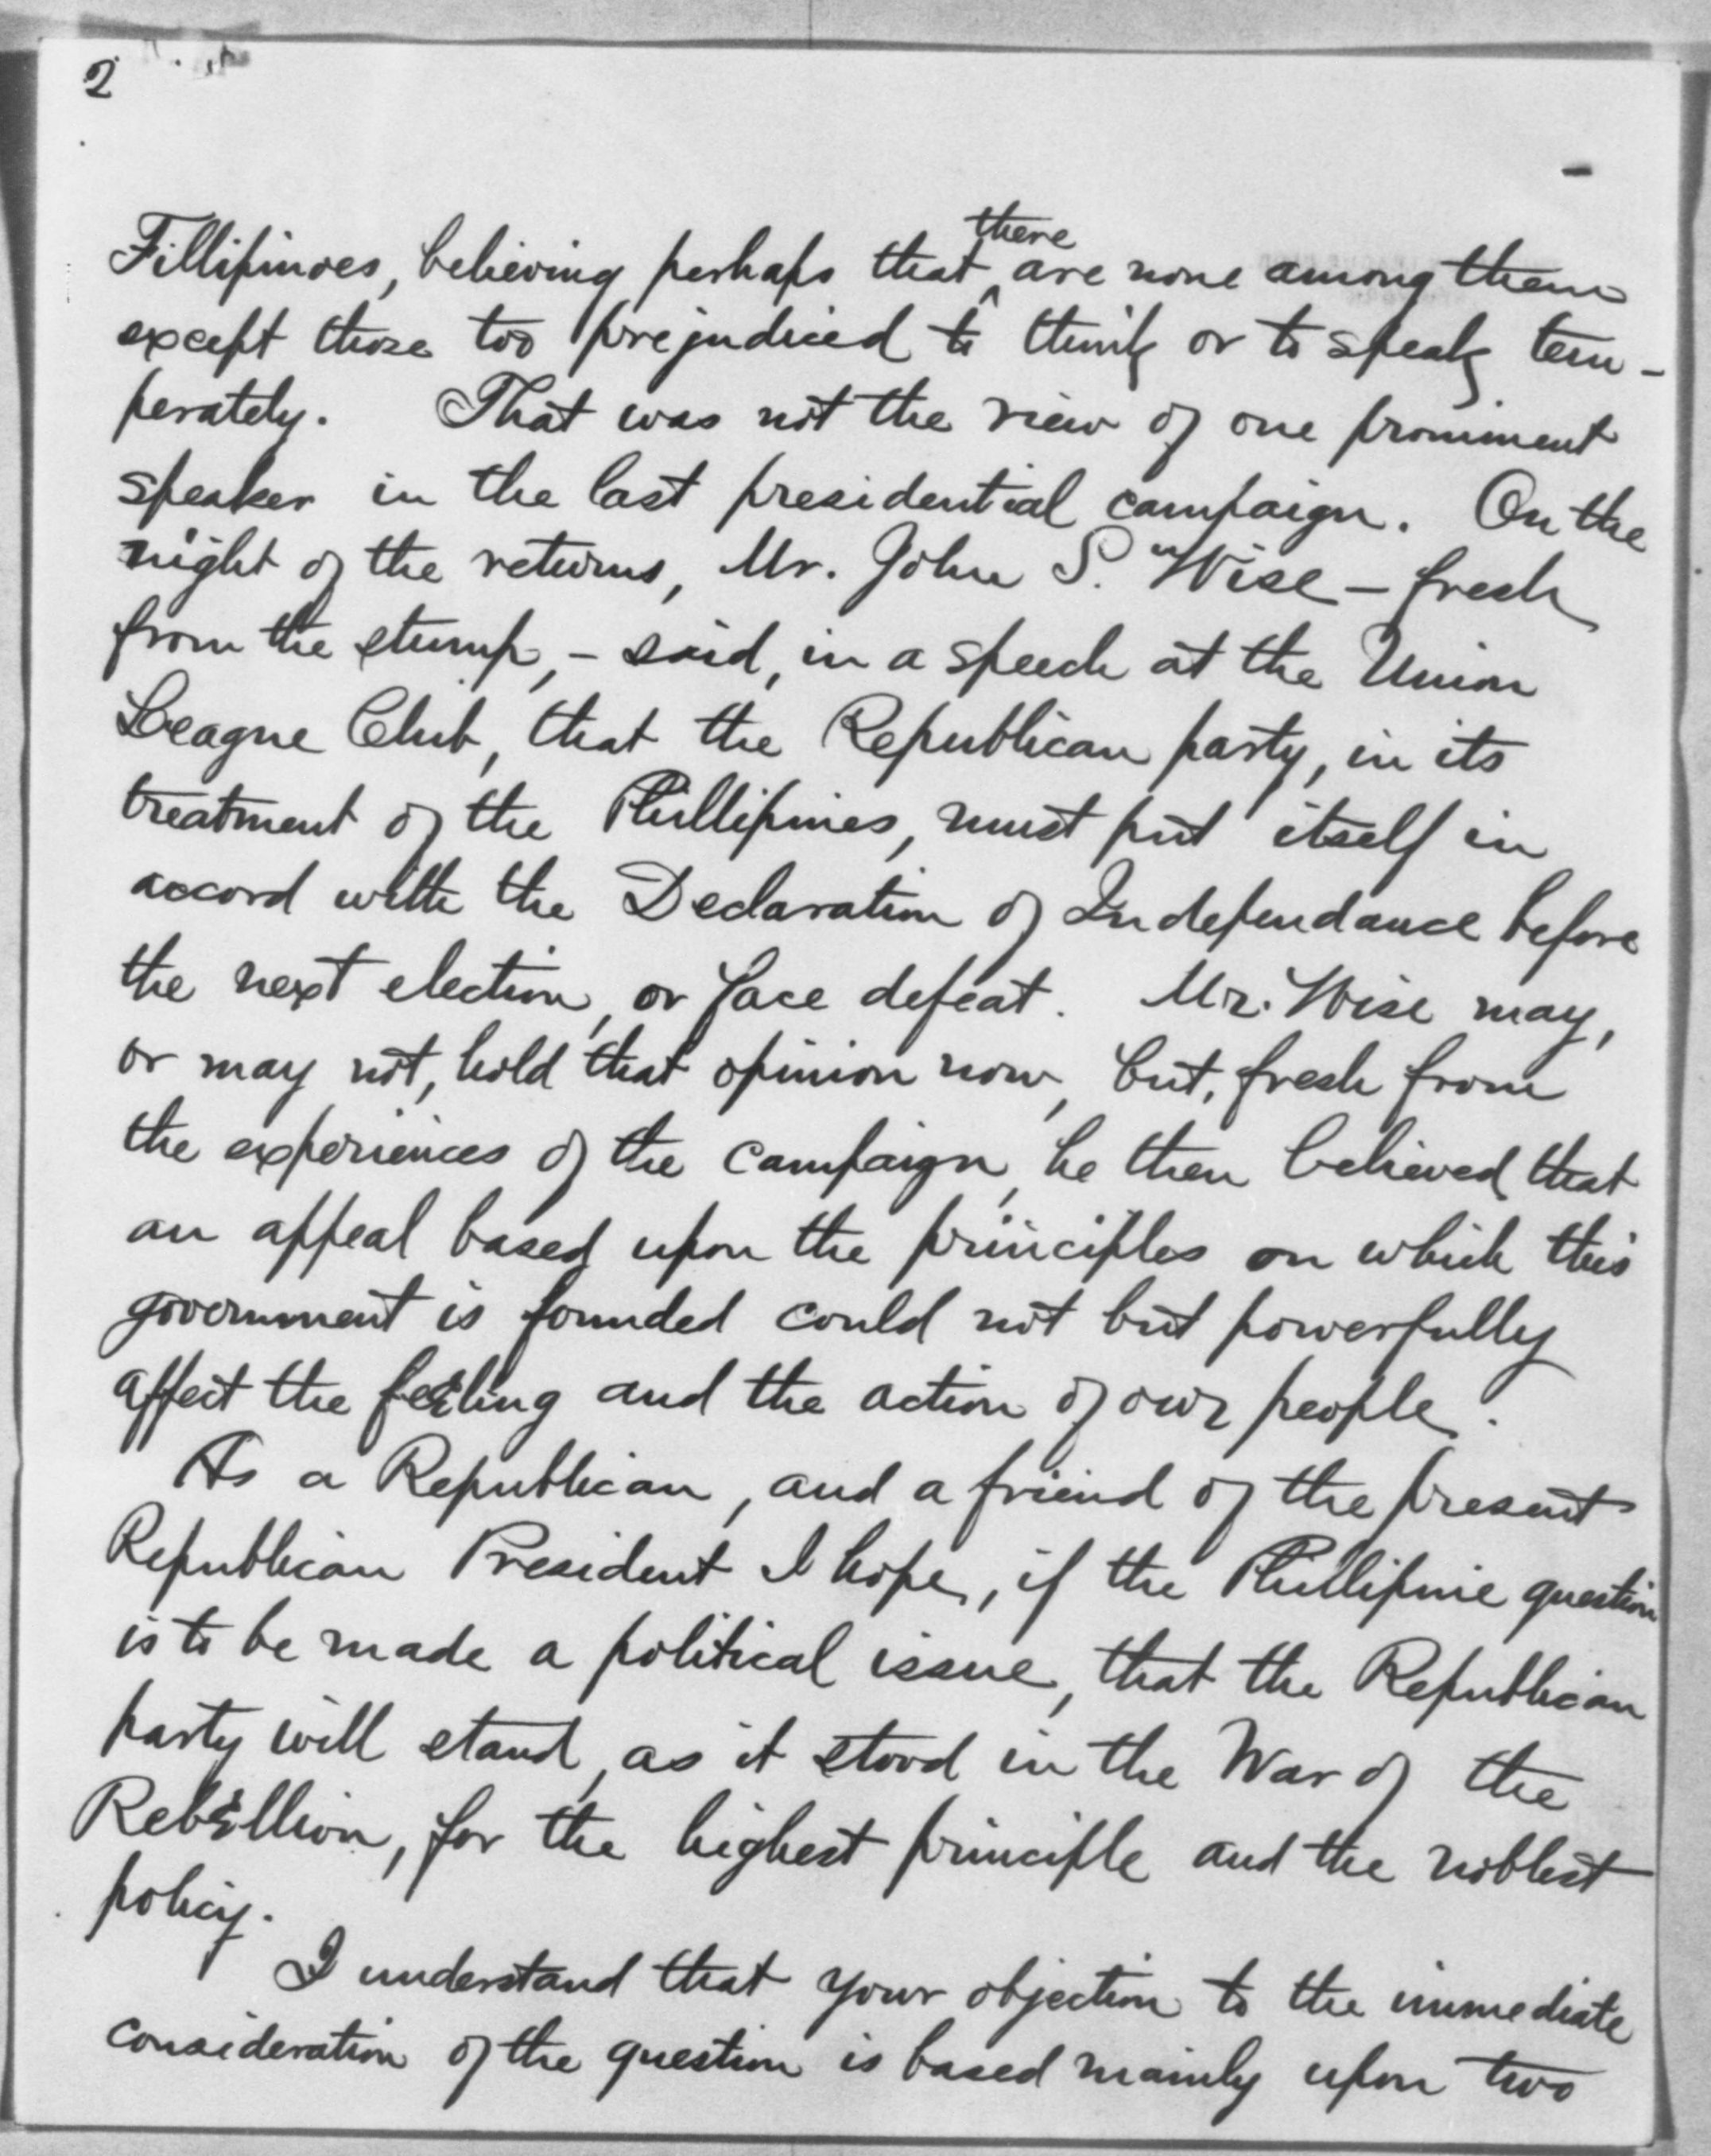 2
Fillipinoes, believing perhaps that there are none among them
except those too prejudiced to think or to speak tem-
perately. That was not the view of one prominent
speaker in the last presidential campaign. On the
night of the returns, Mr. John S. Wise – fresh
from the stump, – said, in a speech at the Union
League Club, that the Republican party, in its
treatment of the Phillipines, must put itself in
accord with the Declaration of Independance before
the next election, or face defeat. Mr. Wise may,
or may not, hold that opinion now, but, fresh from
the experiences of the campaign, he then believed that
an appeal based upon the principles on which this
government is founded could not but powerfully
affect the feeling and the action of our people.
As a Republican, and a friend of the present
Republican President I hope, if the Phillipine question
is to be made a political issue, that the Republican
party will stand, as it stood in the War of the
Rebellion, for the highest principle and the noblest
policy.
I understand that your objection to the immediate
consideration of the question is based mainly upon two